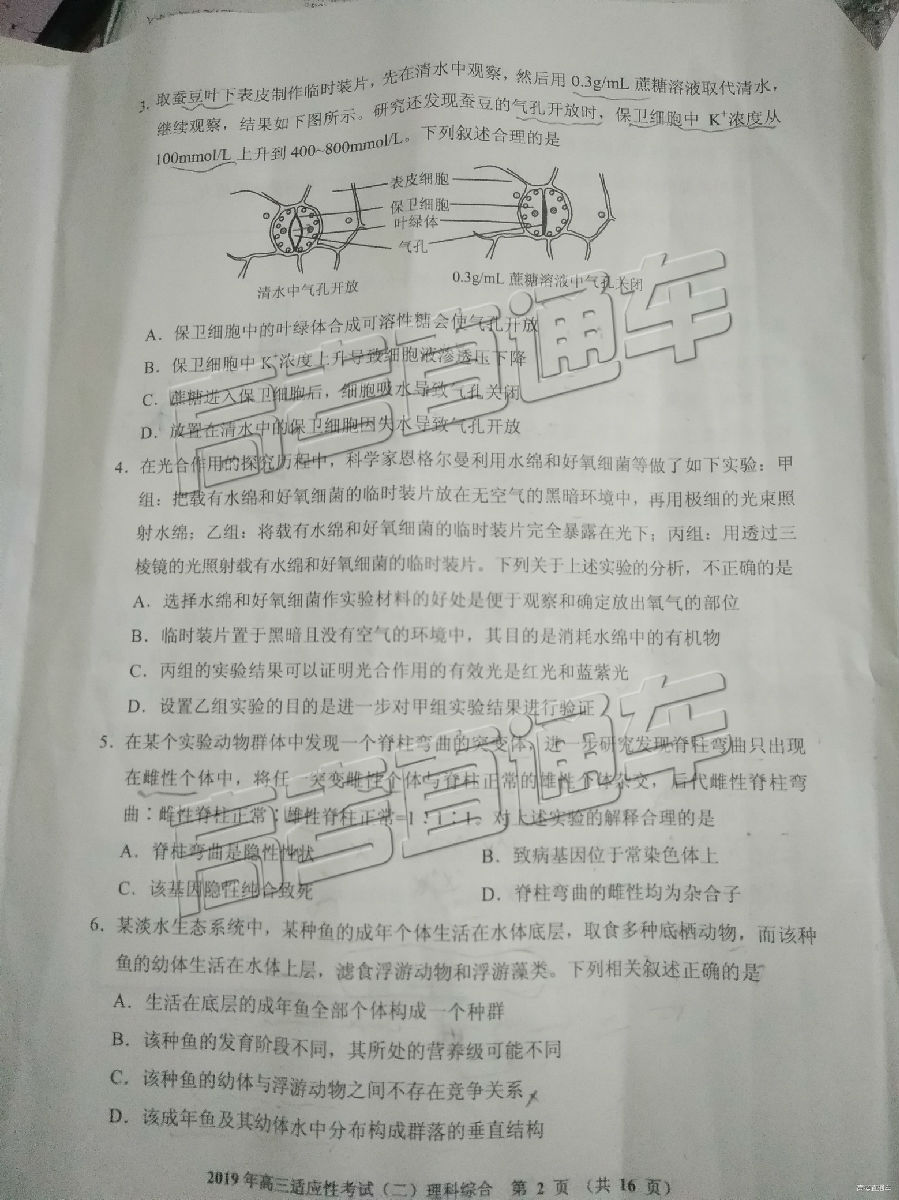 3. 取蚕豆叶下表皮制作临时装片，先在清水中观察，然后用 0.3g/mL 蔗糖溶液取代清水，
继续观察，结果如下图所示。研究还发现蚕豆的气孔开放时，保卫细胞中 K⁺浓度从
100mmol/L 上升到 400~800mmol/L。下列叙述合理的是
表皮细胞
保卫细胞
叶绿体
气孔
清水中气孔开放
0.3g/mL 蔗糖溶液中气孔关闭
A．保卫细胞中的叶绿体合成可溶性糖会使气孔开放
B．保卫细胞中 K⁺浓度上升导致细胞液渗透压下降
C．蔗糖进入保卫细胞后，细胞吸水导致气孔关闭
D．放置在清水中的保卫细胞因失水导致气孔开放
4．在光合作用的探究历程中，科学家恩格尔曼利用水绵和好氧细菌等做了如下实验：甲
组：把载有水绵和好氧细菌的临时装片放在无空气的黑暗环境中，再用极细的光束照
射水绵；乙组：将载有水绵和好氧细菌的临时装片完全暴露在光下；丙组：用透过三
棱镜的光照射载有水绵和好氧细菌的临时装片。下列关于上述实验的分析，不正确的是
A．选择水绵和好氧细菌作实验材料的好处是便于观察和确定放出氧气的部位
B．临时装片置于黑暗且没有空气的环境中，其目的是消耗水绵中的有机物
C．丙组的实验结果可以证明光合作用的有效光是红光和蓝紫光
D．设置乙组实验的目的是进一步对甲组实验结果进行验证
5．在某个实验动物群体中发现一个脊柱弯曲的突变体，进一步研究发现脊柱弯曲只出现
在雌性个体中，将任一突变雌性个体与脊柱正常的雄性个体杂交，后代雌性脊柱弯
曲∶雌性脊柱正常∶雄性脊柱正常=1∶1∶1。对上述实验的解释合理的是
A．脊柱弯曲是隐性性状
B．致病基因位于常染色体上
C．该基因隐性纯合致死
D．脊柱弯曲的雌性均为杂合子
6．某淡水生态系统中，某种鱼的成年个体生活在水体底层，取食多种底栖动物，而该种
鱼的幼体生活在水体上层，滤食浮游动物和浮游藻类。下列相关叙述正确的是
A．生活在底层的成年鱼全部个体构成一个种群
B．该种鱼的发育阶段不同，其所处的营养级可能不同
C．该种鱼的幼体与浮游动物之间不存在竞争关系
D．该成年鱼及其幼体水中分布构成群落的垂直结构
2019 年高三适应性考试（二）理科综合 第 2 页 （共 16 页）
高考直通车
高考直通车
高考直通车